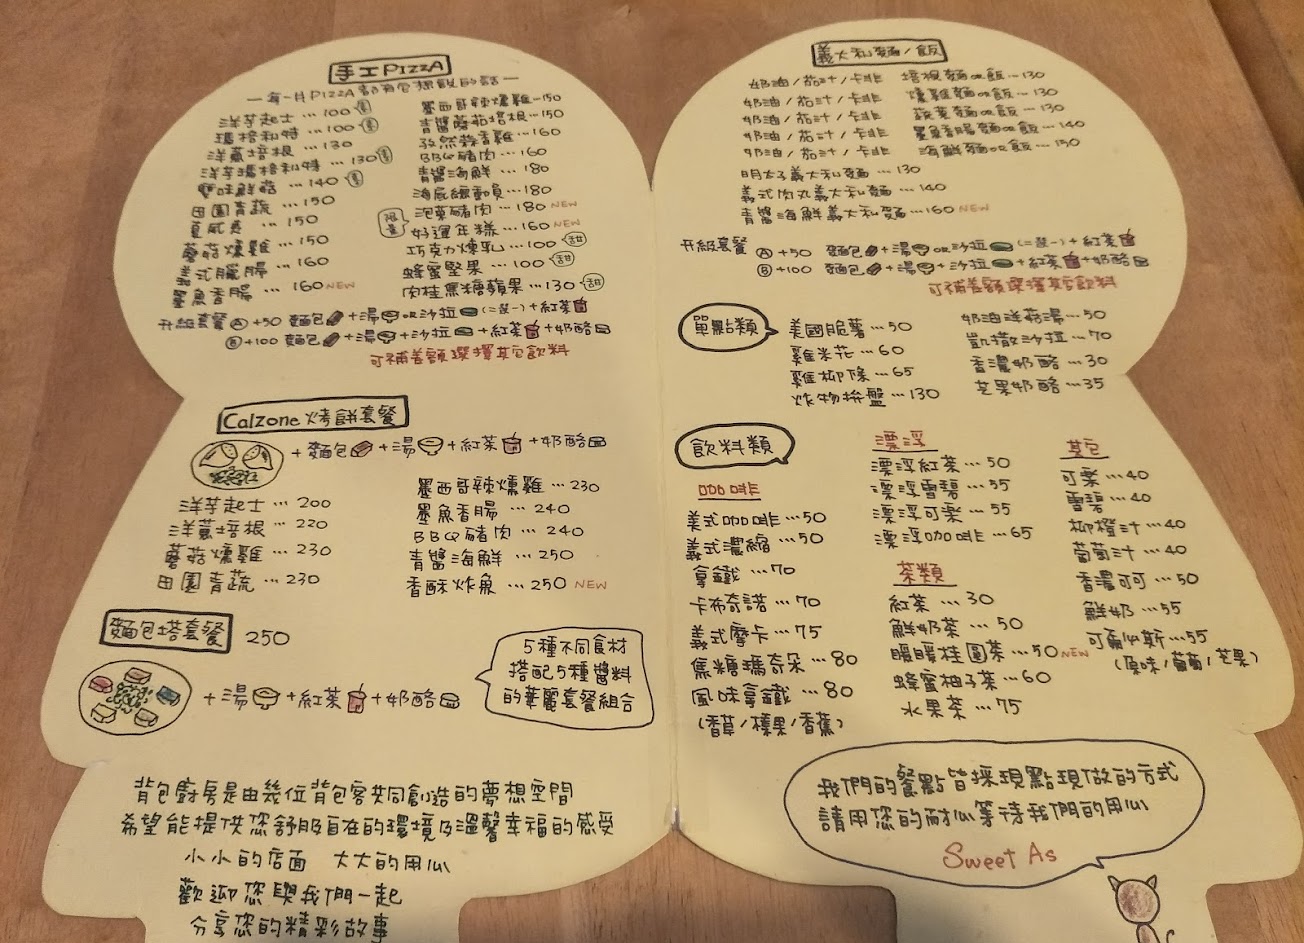 手工PIZZA
一每一片PIZZA都有它裸靚的話一
洋芋起士 … 100 素
瑪格利特 … 100 素
洋蔥培根 … 130
洋芋瑪格利特 … 130 素
雙味鮮酪 … 140 素
田園青蔬 … 150
夏威夷 … 150
蘑菇燻雞 … 150
美式臘腸 … 160
墨魚香腸 … 160 NEW
墨西哥辣燻雞 … 150
青醬蘑菇培根 … 150
孜然蒜香雞 … 160
BBQ豬肉 … 160
青醬海鮮 … 180
海底總動員 … 180
泡菜豬肉 … 180 NEW
好運年糕 … 160 NEW
巧克力煉乳 … 100 甜
蜂蜜堅果 … 100 甜
肉桂焦糖蘋果 … 130 甜
升級套餐 A +50 麵包+湯or沙拉(二選一)+紅茶
B +100 麵包+湯+沙拉+紅茶+奶酪
可補差額選擇其它飲料
Calzone 烤餅套餐
+麵包+湯+紅茶+奶酪
洋芋起士 … 200
洋蔥培根 … 220
蘑菇燻雞 … 230
田園青蔬 … 230
墨西哥辣燻雞 … 230
墨魚香腸 … 240
BBQ豬肉 … 240
青醬海鮮 … 250
香酥炸魚 … 250 NEW
麵包塔套餐 250
+湯+紅茶+奶酪
5種不同食材
搭配5種醬料
的華麗套餐組合
背包廚房是由幾位背包客共同創造的夢想空間
希望能提供您舒服自在的環境及溫馨幸福的感受
小小的店面 大大的用心
歡迎您與我們一起
分享您的精彩故事
義大利麵/飯
奶油/茄汁/卡非 培根麵or飯 … 130
奶油/茄汁/卡非 燻雞麵or飯 … 130
奶油/茄汁/卡非 蔬菜麵or飯 … 130
奶油/茄汁/卡非 墨魚香腸麵or飯 … 140
奶油/茄汁/卡非 海鮮麵or飯 … 150
明太子義大利麵 … 130
義式肉丸義大利麵 … 140
青醬海鮮義大利麵 … 160 NEW
升級套餐 A +50 麵包+湯or沙拉(二選一)+紅茶
B +100 麵包+湯+沙拉+紅茶+奶酪
可補差額選擇其它飲料
單點類
美國脆薯 … 50
雞米花 … 60
雞柳條 … 65
炸物拚盤 … 130
奶油洋菇湯 … 50
凱撒沙拉 … 70
香濃奶酪 … 30
芒果奶酪 … 35
飲料類
咖啡
美式咖啡 … 50
義式濃縮 … 50
拿鐵 … 70
卡布奇諾 … 70
義式摩卡 … 75
焦糖瑪奇朵 … 80
風味拿鐵 … 80
(香草/榛果/香蕉)
漂浮
漂浮紅茶 … 50
漂浮雪碧 … 55
漂浮可樂 … 55
漂浮咖啡 … 65
茶類
紅茶 … 30
鮮奶茶 … 50
暖暖桂圓茶 … 50 NEW
蜂蜜柚子茶 … 60
水果茶 … 75
其它
可樂 … 40
雪碧 … 40
柳橙汁 … 40
葡萄汁 … 40
香濃可可 … 50
鮮奶 … 55
可爾必斯 … 55
(原味/葡萄/芒果)
我們的餐點皆採現點現做的方式
請用您的耐心等待我們的用心
Sweet As